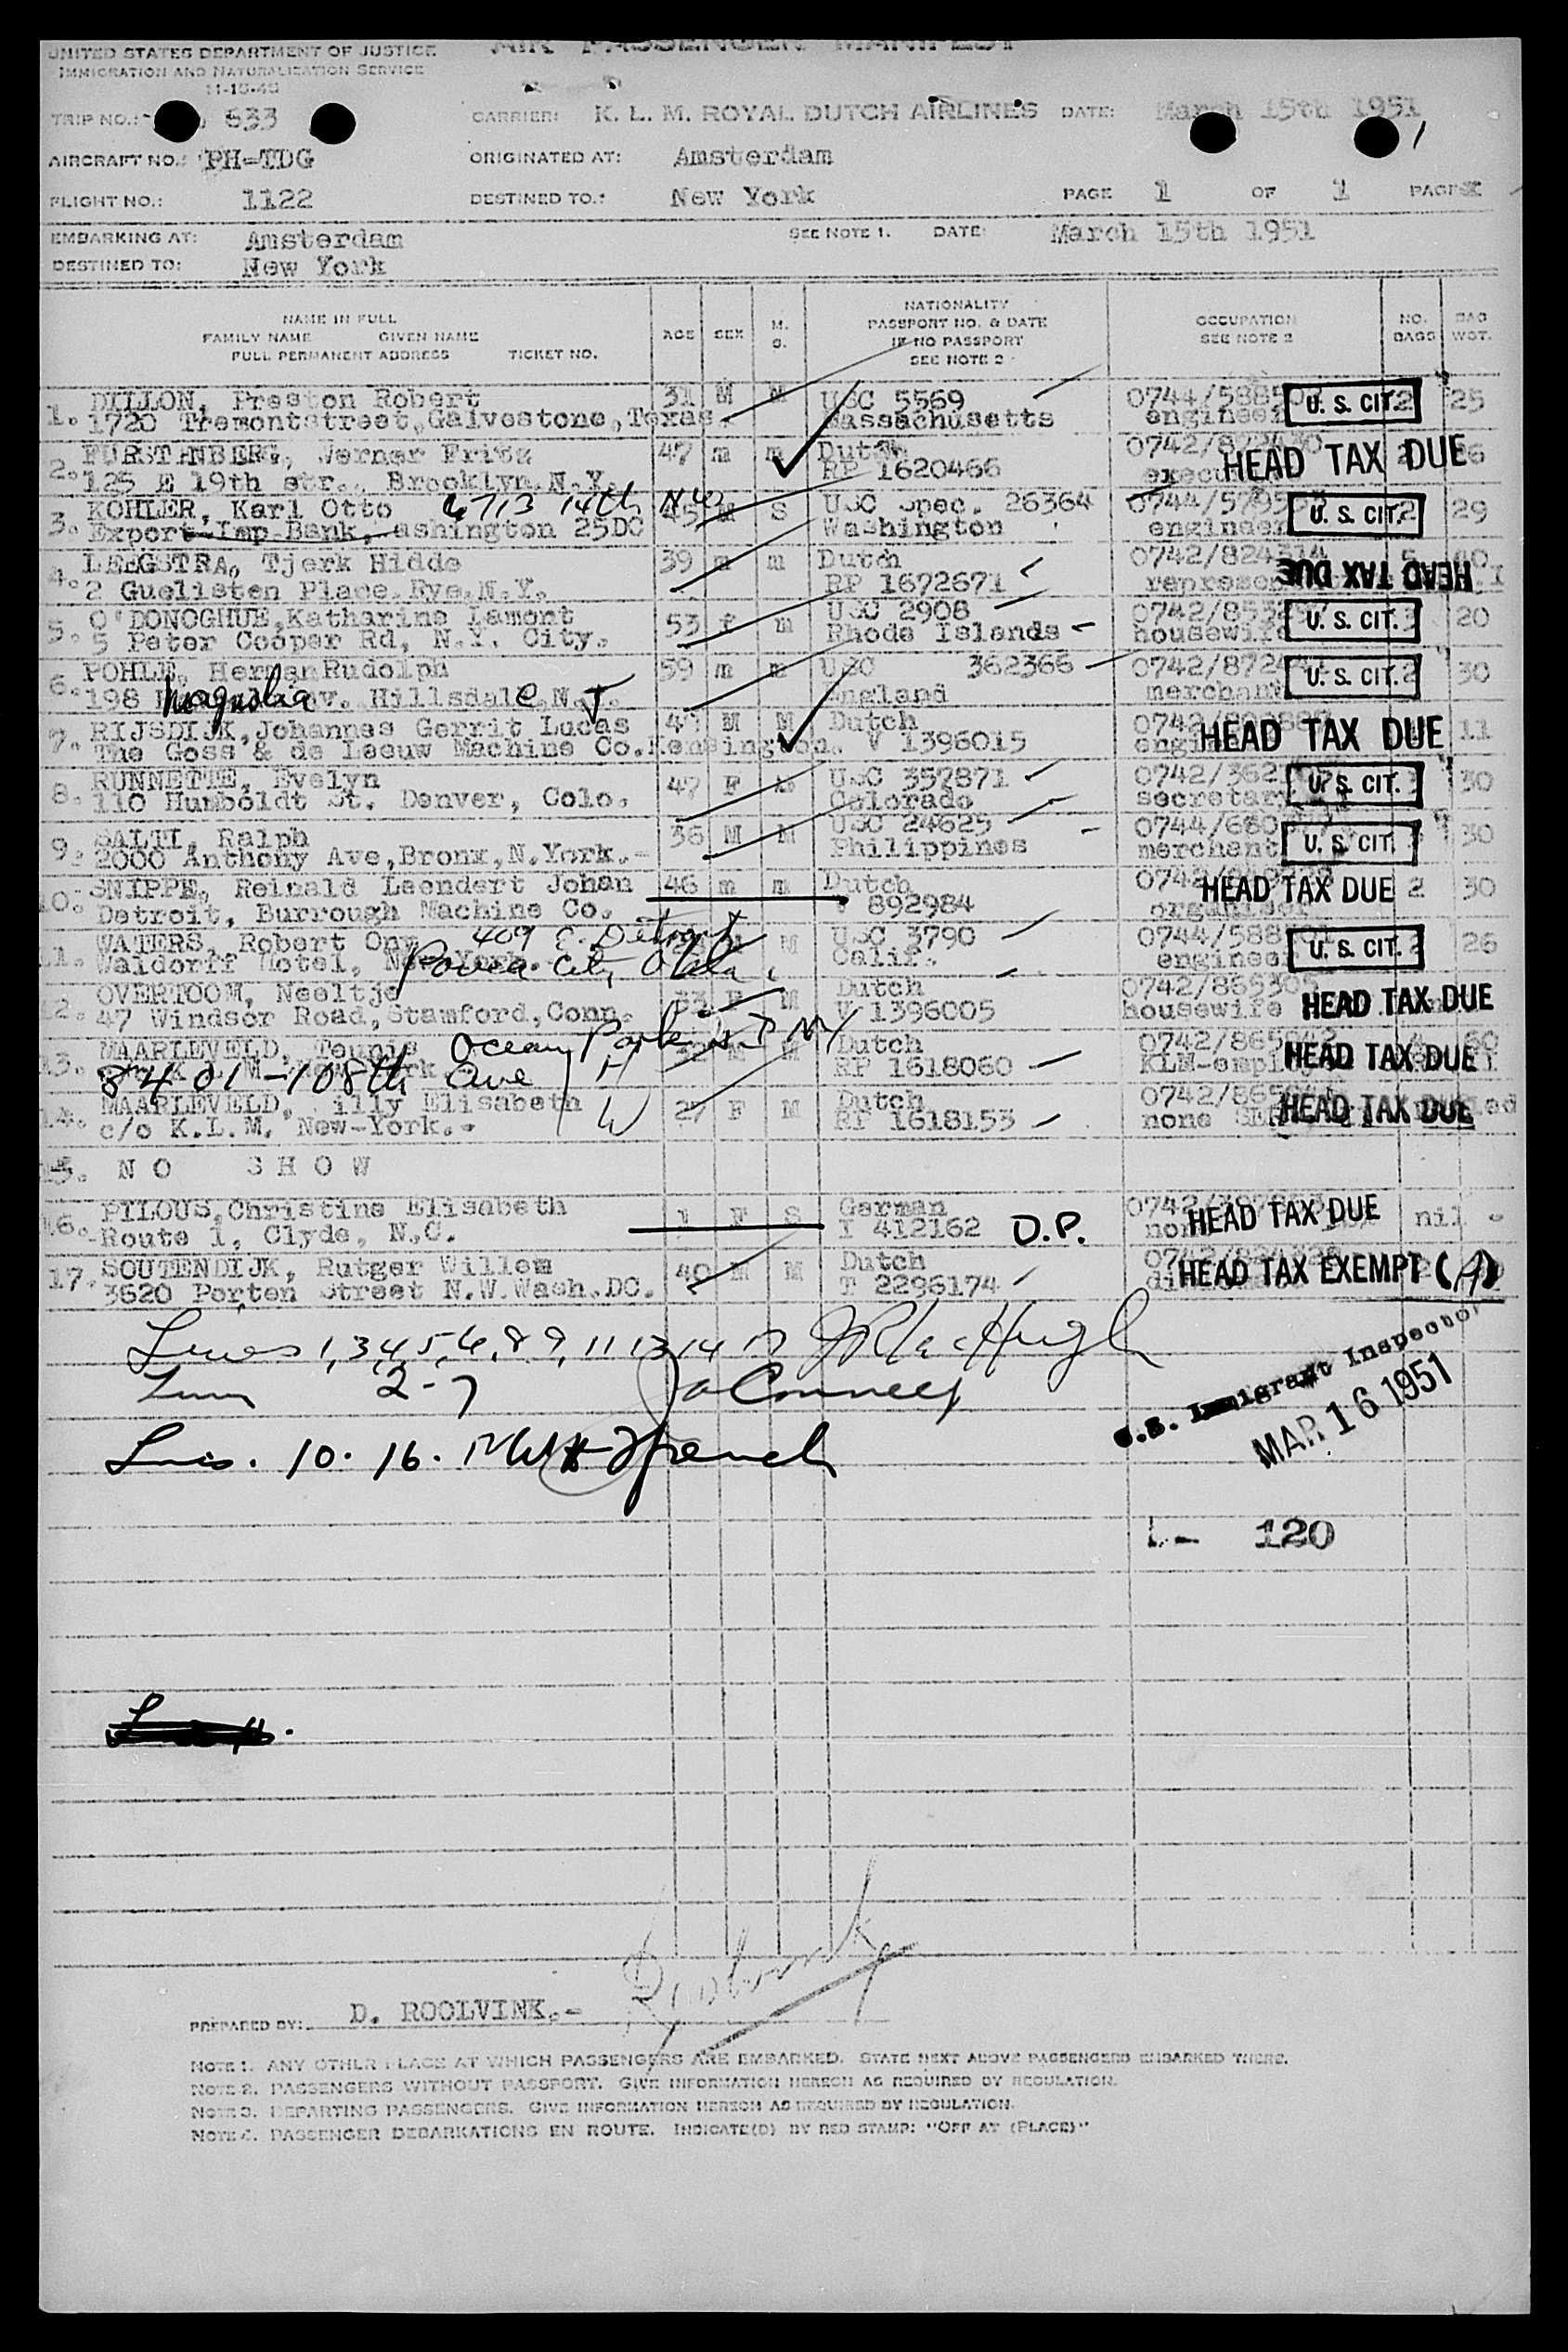 UNITED STATES DEPARTMENT OF JUSTICE
IMMIGRATION AND NATURALIZATION SERVICE
11-15-48
AIR PASSENGER MANIFEST
TRIP NO.: 633 CARRIER: K. L. M. ROYAL DUTCH AIRLINES DATE: March 15th 1951
AIRCRAFT NO.: PH-TDG ORIGINATED AT: Amsterdam
FLIGHT NO.: 1122 DESTINED TO.: New York PAGE 1 OF 1 PAGES
EMBARKING AT: Amsterdam SEE NOTE 1. DATE: March 15th 1951
DESTINED TO: New York
NAME IN FULL
FAMILY NAME GIVEN NAME
FULL PERMANENT ADDRESS TICKET NO.
AGE SEX M. S.
NATIONALITY
PASSPORT NO. & DATE
IF NO PASSPORT
SEE NOTE 2
OCCUPATION
SEE NOTE 2
NO. BAGS
BAG WGT.
1. DILLON, Preston Robert 31 M M USC 5569 U. S. CIT. 2 25
1720 Tremontstreet, Galvestone, Texas. Massachusetts engineer
2. FURSTENBERG, Werner Fritz 47 m m Dutch HEAD TAX DUE
125 E 19th str., Brooklyn N.Y. RP 1620466
3. KOHLER, Karl Otto 6713 14th NW 45 M S USC Spec. 26364 U. S. CIT. 2 29
Export-Imp Bank, ashington 25DC Washington engineer
4. LEEGSTRA, Tjerk Hidde 39 m m Dutch 0742/824314 HEAD TAX DUE
2 Guelisten Place. Rye. N.Y. RP 1672671
5. O'DONOGHUE, Katharine Lamont 53 f m USC 2908 U. S. CIT. 3 20
5 Peter Cooper Rd, N.Y. City. Rhode Islands housewife
6. POHLE, Herman Rudolph 59 m m USC 362366 U. S. CIT. 2 30
198 Magnolia v. Hillsdale N.J. England merchant
7. RIJSDIJK, Johannes Gerrit Lucas M M Dutch HEAD TAX DUE 11
The Goss & de Leeuw Machine Co. Kensington. V 1396015
8. RUNNETTE, Evelyn 47 F USC 357871 U. S. CIT. 30
110 Humboldt St. Denver, Colo. Colorado secretary
9. SALTI, Ralph 36 M M USC 24625 U. S. CIT. 30
2000 Anthony Ave, Bronx, N.York.- Philippines merchant
10. SNIPPE, Reinald Leendert Johan 46 m m Dutch HEAD TAX DUE 2 30
Detroit, Burrough Machine Co. V 892984
11. WATERS, Robert 409 E. Detroit M USC 3790 U. S. CIT. 26
Waldorff Hotel, New York. Ponca City Okla. Calif. engineer
12. OVERTOOM, Neeltje 33 F M Dutch 0742/865305 HEAD TAX DUE
47 Windsor Road, Stamford, Conn. V 1396005 housewife
13. MAARLEVELD, Teunis Ocean Park NY M Dutch HEAD TAX DUE
8401-108th Ave H RP 1618060
14. MAARLEVELD, illy Elisabeth W 27 F M Dutch HEAD TAX DUE
c/o K.L.M. New-York.- RP 1618153 none
15. NO SHOW
16. PILOUS, Christine Elisabeth 1 F S German HEAD TAX DUE nil -
Route 1, Clyde, N.C. I 412162 D.P.
17. SOUTENDIJK, Rutger Willem 40 M M Dutch HEAD TAX EXEMPT (A)
3620 Porten Street N.W. Wash. DC. T 2296174
Lines 1,3,4,5,6,8,9,11 13 14 17
2-7
10. 16.
U.S. Immigrant Inspector
MAR 16 1951
120
PREPARED BY: D. ROOLVINK.-
NOTE 1. ANY OTHER PLACE AT WHICH PASSENGERS ARE EMBARKED. STATE NEXT ABOVE PASSENGERS EMBARKED THERE.
NOTE 2. PASSENGERS WITHOUT PASSPORT. GIVE INFORMATION HEREON AS REQUIRED BY REGULATION.
NOTE 3. DEPARTING PASSENGERS. GIVE INFORMATION HEREON AS REQUIRED BY REGULATION.
NOTE 4. PASSENGER DEBARKATIONS EN ROUTE. INDICATE(D) BY RED STAMP: "OFF AT (PLACE)"